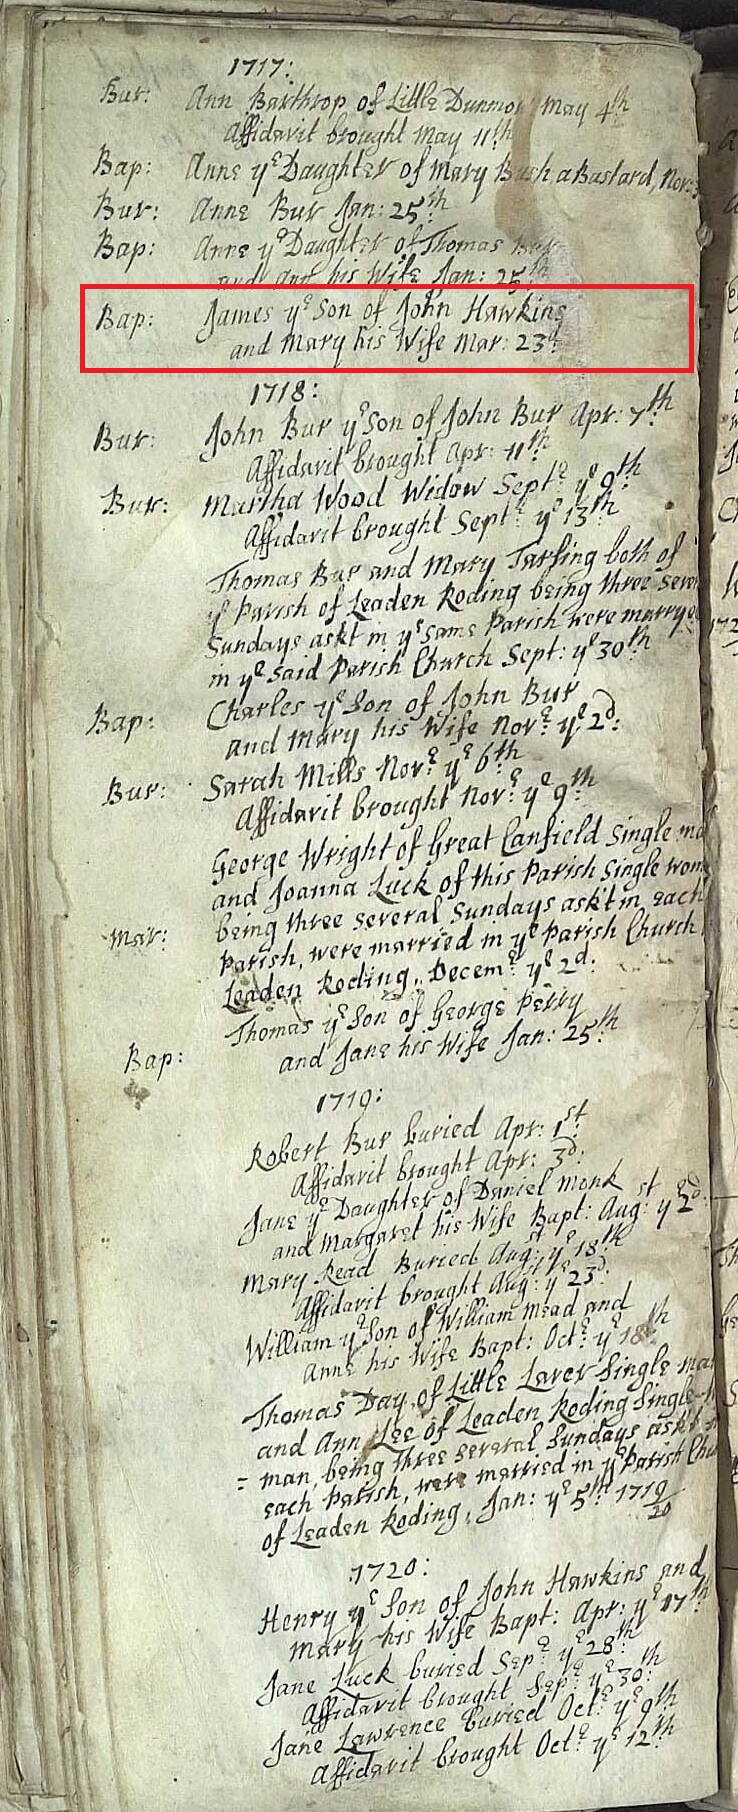 1717:
Bur: Ann Barthrop of Little Dunmow May 4th
Affidavit brought May 11th
Bap: Anne ye Daughter of Mary Bush a Bastard, Nov:
Bur: Anne Bur Jan: 25th
Bap: Anne ye Daughter of Thomas Bur
and Ann his Wife Jan: 25th
Bap: James ye Son of John Hawkins
and Mary his Wife Mar: 23d:
1718:
Bur: John Bur ye Son of John Bur Apr: 7th
Affidavit brought Apr: 11th
Bur: Martha Wood Widow Septe ye 9th
Affidavit brought Septe ye 13th
Thomas Bur and Mary Tarling both of
ye Parish of Leaden Roding being three sever
Sundays askt in ye same Parish were marrye
in ye said Parish Church Sept: ye 30th
Bap: Charles ye Son of John Bur
and Mary his Wife Nove ye 2d:
Bur: Sarah Mills Nove ye 6th
Affidavit brought Nove ye 9th
George Wright of Great Canfield Single ma
and Joanna Luck of this Parish Single wom
Mar: being three several Sundays ask't in each
Parish, were married in ye Parish Church
Leaden Roding, Deceme ye 2d:
Thomas ye Son of George Perry
Bap: and Jane his Wife Jan: 25th
1719:
Robert Bur buried Apr: 1st
Affidavit brought Apr: 3d:
Jane ye Daughter of Daniel Monk
and Margaret his Wife Bapt: Aug: ye 2d:
Mary Read Buried Aug: ye 18th
Affidavit brought Aug: ye 23d:
William ye Son of William Mead and
Anne his Wife Bapt: Octe ye 18th
Thomas Day of Little Laver Single ma
and Ann Lee of Leaden Roding Single
= man, being three several Sundays askt
each Parish, were married in ye Parish Chu
of Leaden Roding, Jan: ye 5th 1719/20
1720:
Henry ye Son of John Hawkins and
Mary his Wife Bapt: Apr: ye 17th
Jane Luck buried Sepe ye 28th
Affidavit brought Sepe ye 30:
Jane Lawrence buried Octe ye 9th
Affidavit brought Octe ye 12th